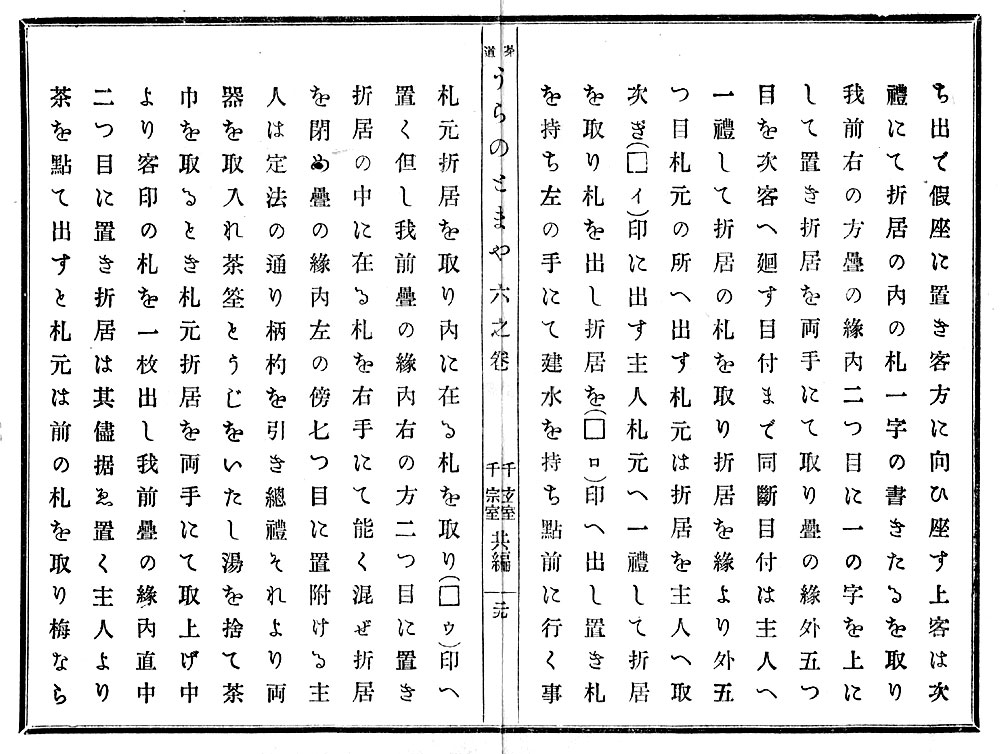 ち出で假座に置き客方に向ひ座す上客は次
禮にて折居の内の札一字の書きたるを取り
我前右の方疊の緣內二つ目に一の字を上に
して置き折居を両手にて取り疊の緣外五つ
目を次客へ廻す目付まで同斷目付は主人へ
一禮して折居の札を取り折居を緣より外五
つ目札元の所へ出す札元は折居を主人へ取
次ぎ(□ィ)印に出す主人札元へ一禮して折居
を取り札を出し折居を(□ロ)印へ出し置き札
を持ち左の手にて建水を持ち點前に行く事
茶道 うらのとまや六之卷 千玄室 千宗室 共編 元
札元折居を取り內に在る札を取り(□ゥ)印へ
置く但し我前疊の緣內右の方二つ目に置き
折居の中に在る札を右手にて能く混ぜ折居
を閉め疊の緣內左の傍七つ目に置附ける主
人は定法の通り柄杓を引き總禮それより両
器を取入れ茶筌とうじをいたし湯を捨て茶
巾を取るとき札元折居を両手にて取上げ中
より客印の札を一枚出し我前疊の緣內直中
二つ目に置き折居は其儘据ゑ置く主人より
茶を點て出すと札元は前の札を取り梅なら